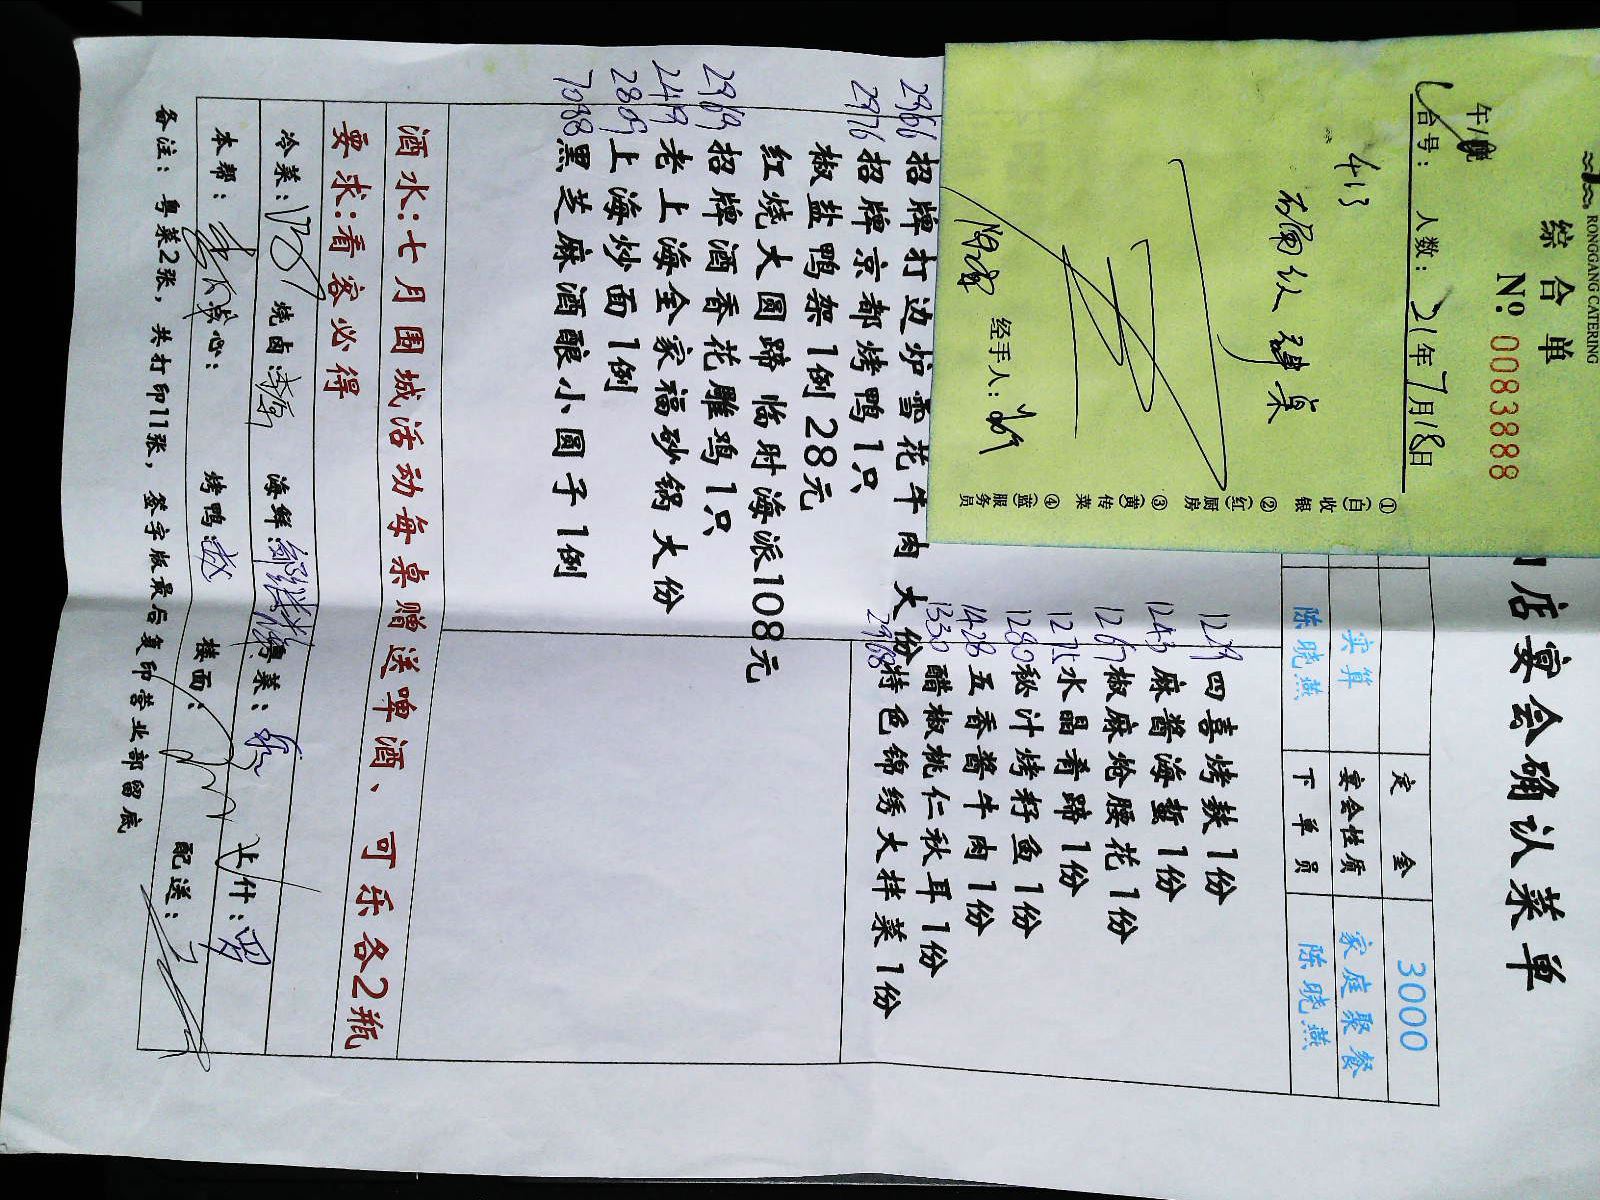 店宴会确认菜单
定 金 3000
实算 宴会性质 家庭聚餐
陈晓燕 下单员 陈晓燕
RONGGANG CATERING
综合单
午/晚
№: 0083888
台号: 人数: 21年7月18日
413
经手人:
①(白)收银
②(红)厨房
③(黄)传菜
④(蓝)服务员
1229 四喜烤麸1份
1243 麻酱海蜇1份
1267 椒麻炝腰花1份
1272 水晶肴蹄1份
1280 秘汁烤籽鱼1份
1428 五香酱牛肉1份
1330 醋椒桃仁秋耳1份
29168 特色锦绣大拌菜1份
2966 招牌打边炉雪花牛肉大份
2976 招牌京都烤鸭1只
椒盐鸭架1例28元
红烧大圆蹄 临时海派108元
2969 招牌酒香花雕鸡1只
2419 老上海全家福砂锅大份
2809 上海炒面1例
7088 黑芝麻酒酿小圆子1例
酒水:七月围城活动每桌赠送啤酒、可乐各2瓶
要求:看客必得
冷菜: 烧卤: 海鲜: 粤菜: 上什: 罗
本帮: 点心: 烤鸭: 接面: 配送:
备注: 粤菜2张, 共打印11张, 签字版最后复印营业部留底